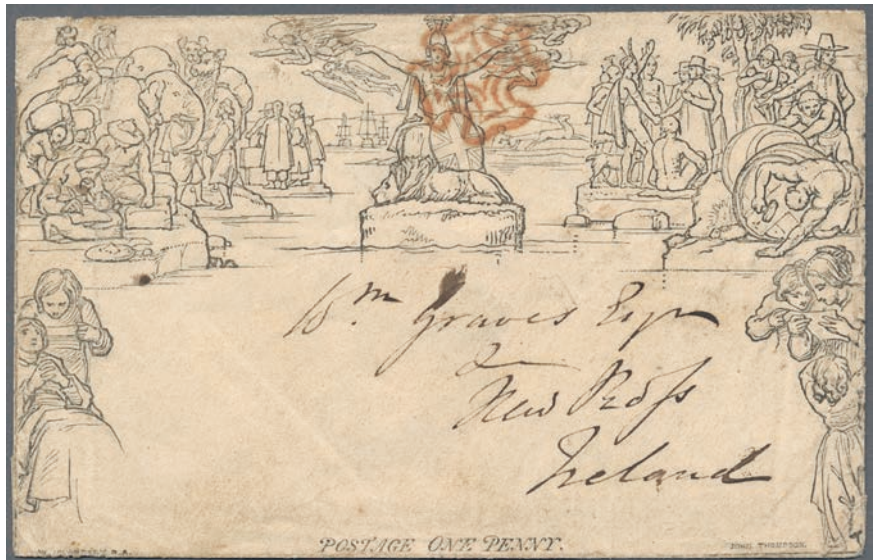 Wm Graves Esqr
New Ross
Ireland
POSTAGE ONE PENNY.
JOHN THOMPSON